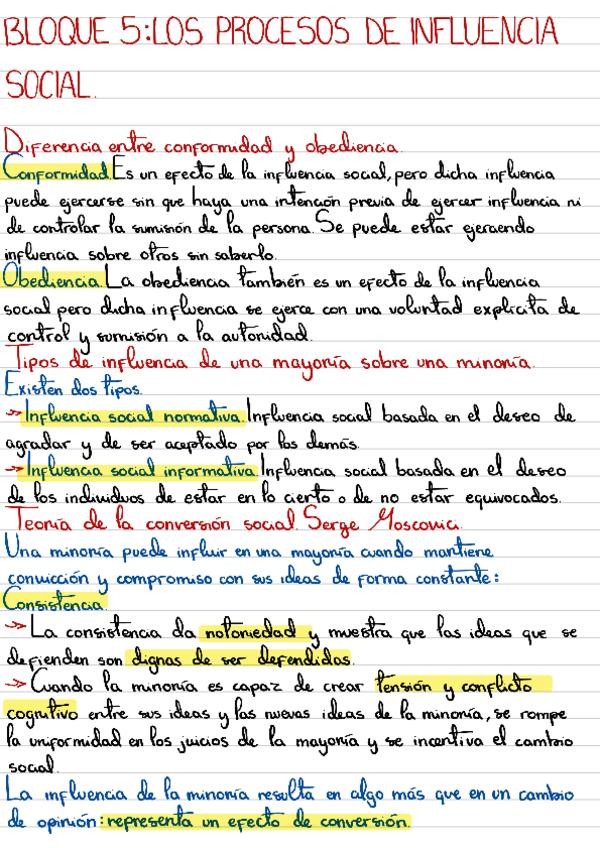 BLOQUE 5:LOS PROCESOS DE INFLUENCIA
SOCIAL.
Diferencia entre conformidad y obediencia.
Conformidad. Es un efecto de la influencia social, pero dicha influencia
puede ejercerse sin que haya una intención previa de ejercer influencia ni
de controlar la sumisión de la persona. Se puede estar ejerciendo
influencia sobre otros sin saberlo.
Obediencia. La obediencia también es un efecto de la influencia
social pero dicha influencia se ejerce con una voluntad explícita de
control y sumisión a la autoridad.
Tipos de influencia de una mayoría sobre una minoría.
Existen dos tipos.
Influencia social normativa. Influencia social basada en el deseo de
agradar y de ser aceptado por los demás.
Influencia social informativa. Influencia social basada en el deseo
de los individuos de estar en lo cierto o de no estar equivocados.
Teoría de la conversión social. Serge Moscovici.
Una minoría puede influir en una mayoría cuando mantiene
convicción y compromiso con sus ideas de forma constante:
Consistencia.
La consistencia da notoriedad y muestra que las ideas que se
defienden son dignas de ser defendidas.
Cuando la minoría es capaz de crear tensión y conflicto
cognitivo entre sus ideas y las nuevas ideas de la minoría, se rompe
la uniformidad en los juicios de la mayoría y se incentiva el cambio
social.
La influencia de la minoría resulta en algo más que en un cambio
de opinión: representa un efecto de conversión.